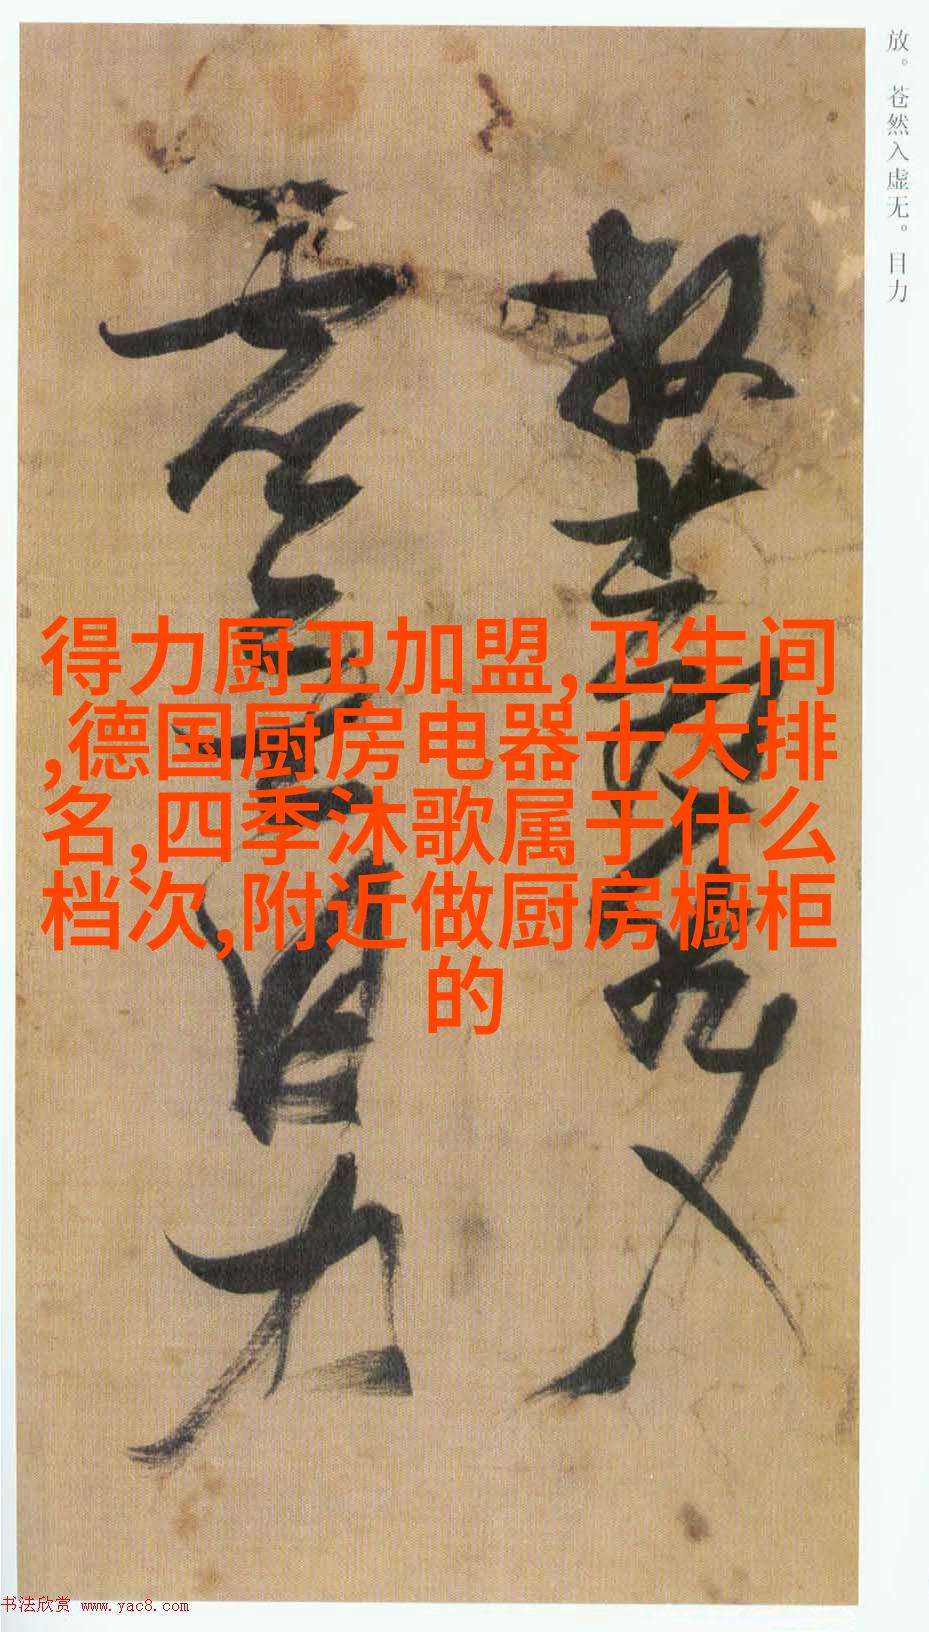 放。苍然入虚无。目力
放苍然入
虚无目力
得力厨卫加盟,卫生间
,德国厨房电器十大排
名,四季沐歌属于什么
档次,附近做厨房橱柜
的
书法欣赏 www.yac8.com